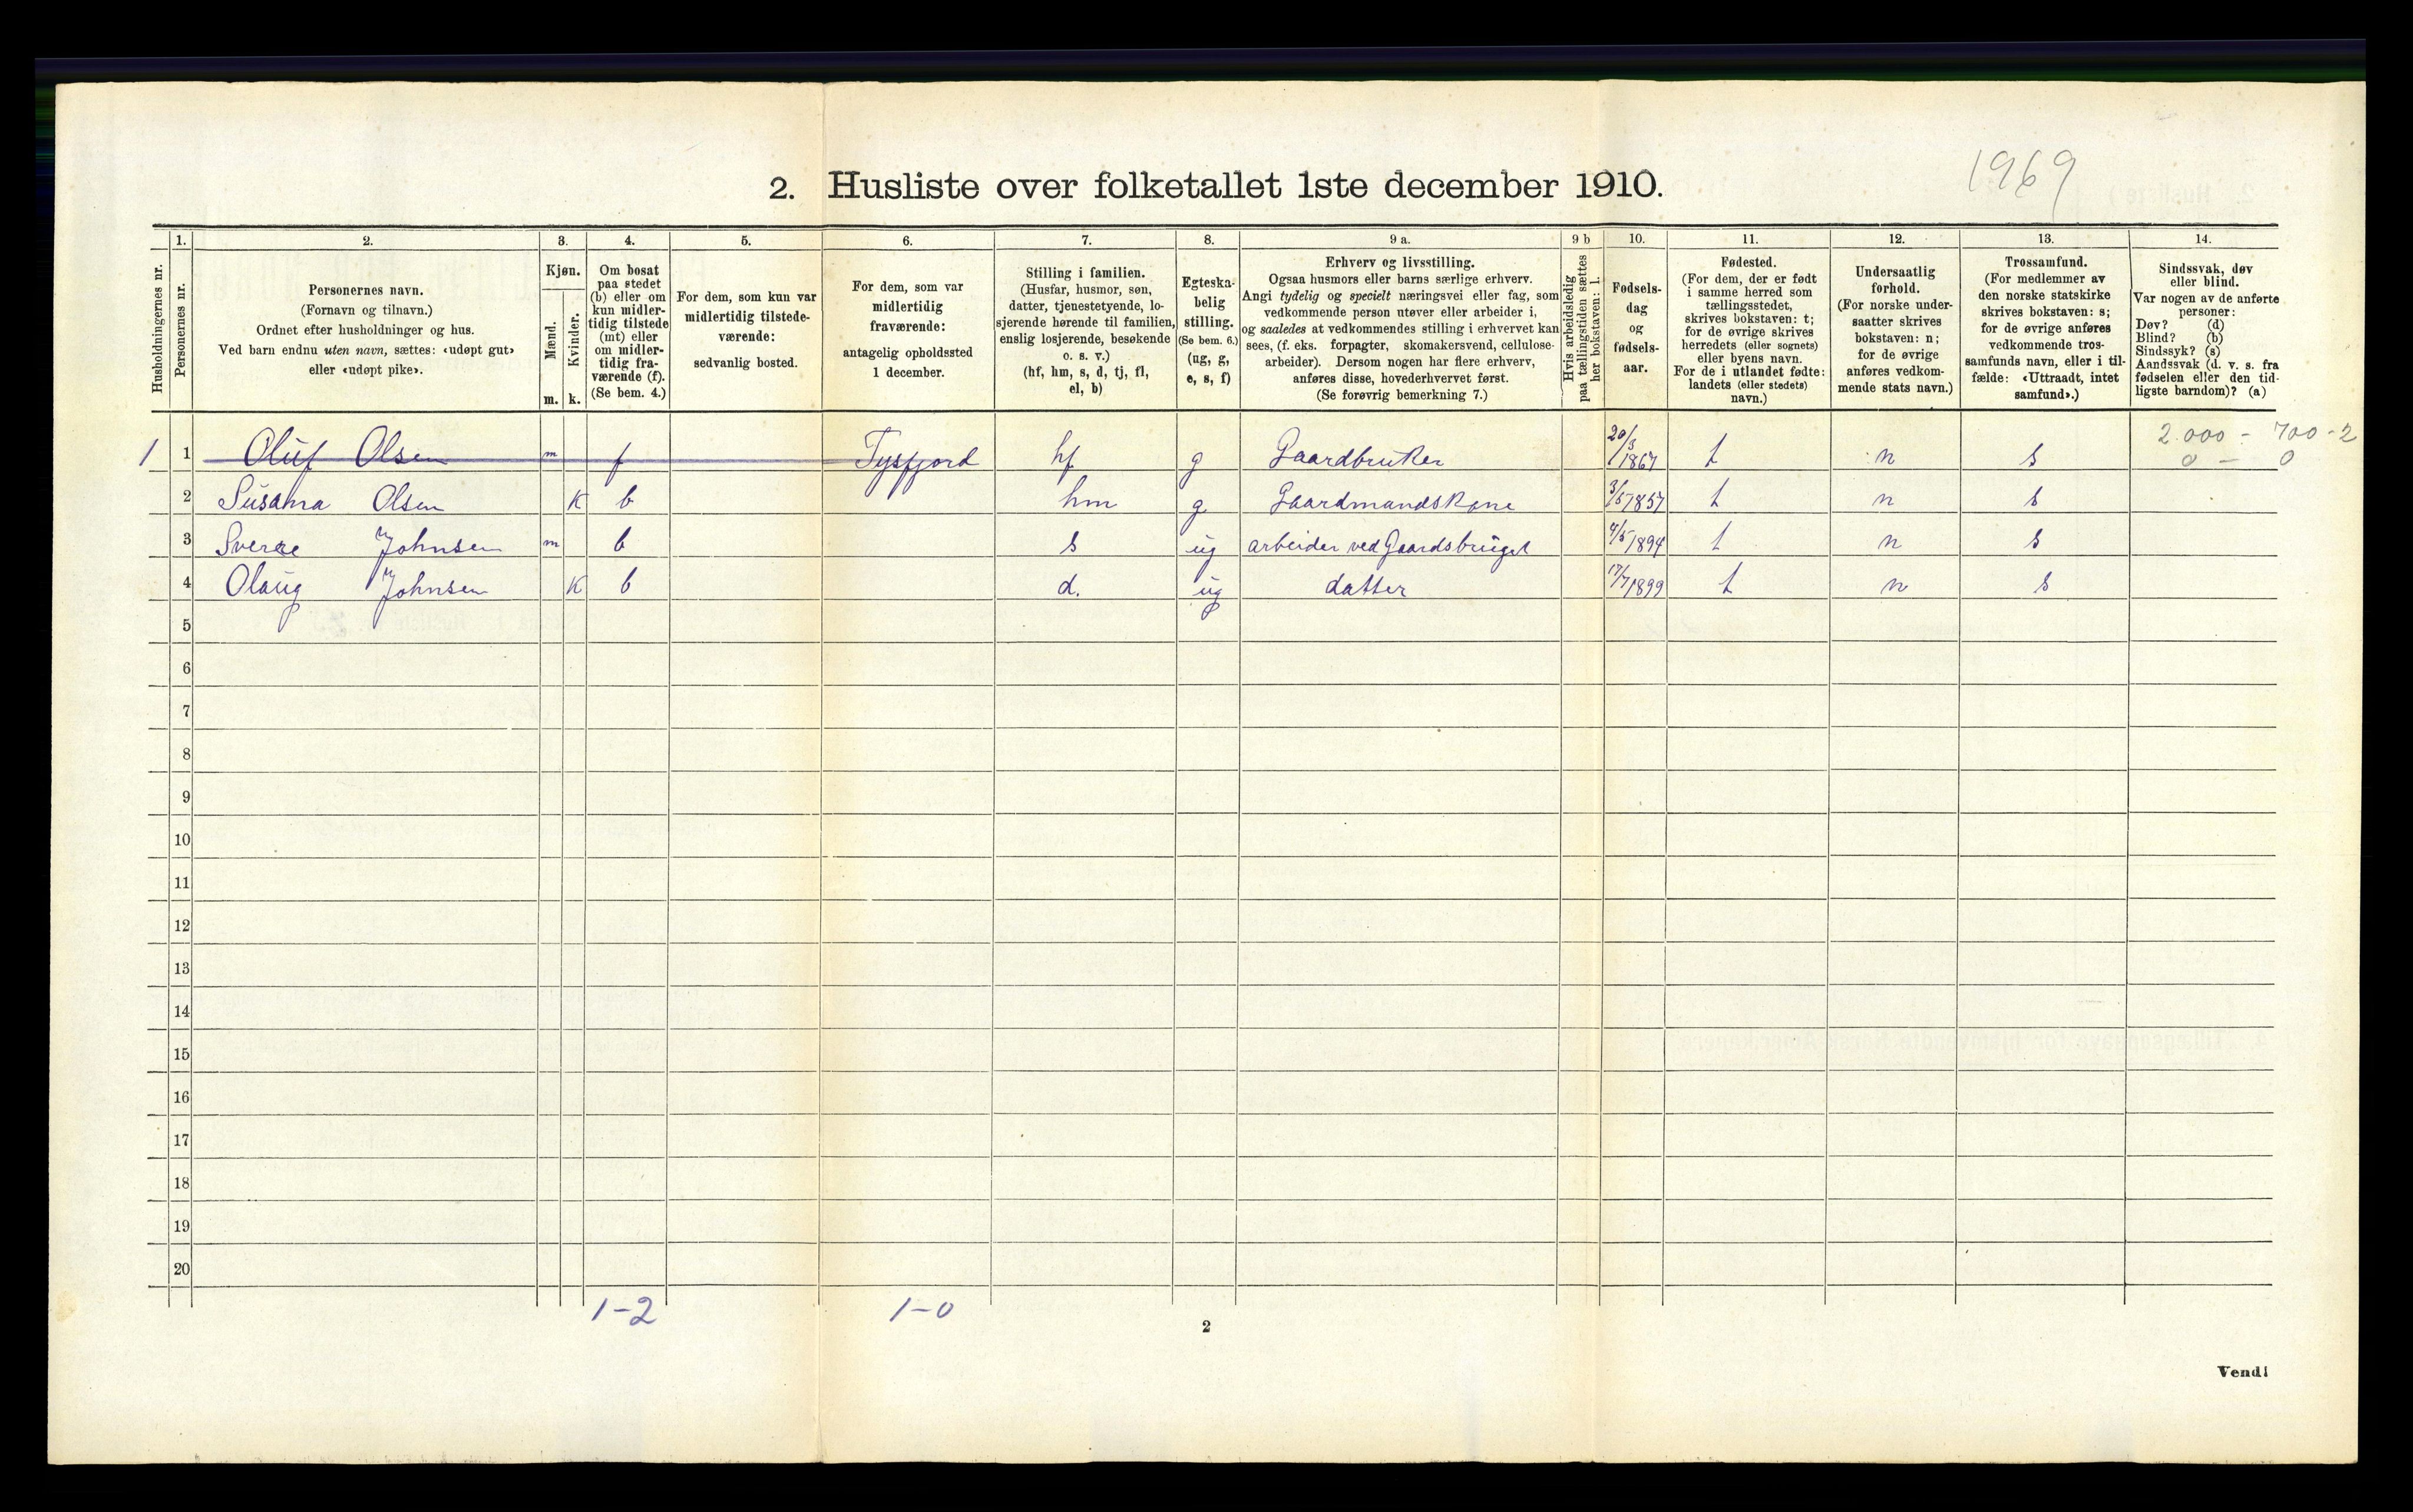 1969
2. Husliste over folketallet 1ste december 1910.
Husholdningernes nr.
1.
Personernes nr.
2.
Personernes navn.
(Fornavn og tilnavn.)
Ordnet efter husholdninger og hus.
Ved barn endnu uten navn, sættes: «udøpt gut»
eller «udøpt pike».
3.
Kjøn.
Mænd.
Kvinder.
m. k.
4.
Om bosat
paa stedet
(b) eller om
kun midler-
tidig tilstede
(mt) eller
om midler-
tidig fra-
værende (f).
(Se bem. 4.)
5.
For dem, som kun var
midlertidig tilstede-
værende:
sedvanlig bosted.
6.
For dem, som var
midlertidig
fraværende:
antagelig opholdssted
1 december.
7.
Stilling i familien.
(Husfar, husmor, søn,
datter, tjenestetyende, lo-
sjerende hørende til familien,
enslig losjerende, besøkende
o. s. v.)
(hf, hm, s, d, tj, fl,
el, b)
8.
Egteska-
belig
stilling.
(Se bem. 6.)
(ug, g,
e, s, f)
9 a.
Erhverv og livsstilling.
Ogsaa husmors eller barns særlige erhverv.
Angi tydelig og specielt næringsvei eller fag, som
vedkommende person utøver eller arbeider i,
og saaledes at vedkommendes stilling i erhvervet kan
sees, (f. eks. forpagter, skomakersvend, cellulose-
arbeider). Dersom nogen har flere erhverv,
anføres disse, hovederhvervet først.
(Se forøvrig bemerkning 7.)
9 b
Hvis arbeidsledig
paa tællingstiden sættes
her bokstaven: l.
10.
Fødsels-
dag
og
fødsels-
aar.
11.
Fødested.
(For dem, der er født
i samme herred som
tællingsstedet,
skrives bokstaven: t;
for de øvrige skrives
herredets (eller sognets)
eller byens navn.
For de i utlandet fødte:
landets (eller stedets)
navn.)
12.
Undersaatlig
forhold.
(For norske under-
saatter skrives
bokstaven: n;
for de øvrige
anføres vedkom-
mende stats navn.)
13.
Trossamfund.
(For medlemmer av
den norske statskirke
skrives bokstaven: s;
for de øvrige anføres
vedkommende tros-
samfunds navn, eller i til-
fælde: «Uttraadt, intet
samfund».)
14.
Sindssvak, døv
eller blind.
Var nogen av de anførte
personer:
Døv? (d)
Blind? (b)
Sindssyk? (s)
Aandssvak (d. v. s. fra
fødselen eller den tid-
ligste barndom)? (a)
2.000 - 700 - 2
0 - 0
1 1 Oluf Olsen m f Tysfjord hf g Gaardbruker 20/3 1867 t n s
2 Susanna Olsen k b hm g Gaardmandskone 3/5 1857 t n s
3 Sverre Johnsen m b s ug arbeider ved Gaardsbruget 4/5 1894 t n s
4 Olaug Johnsen k b d. ug datter 17/7 1899 t n s
5
6
7
8
9
10
11
12
13
14
15
16
17
18
19
20
1-2 1-0
2
Vend!